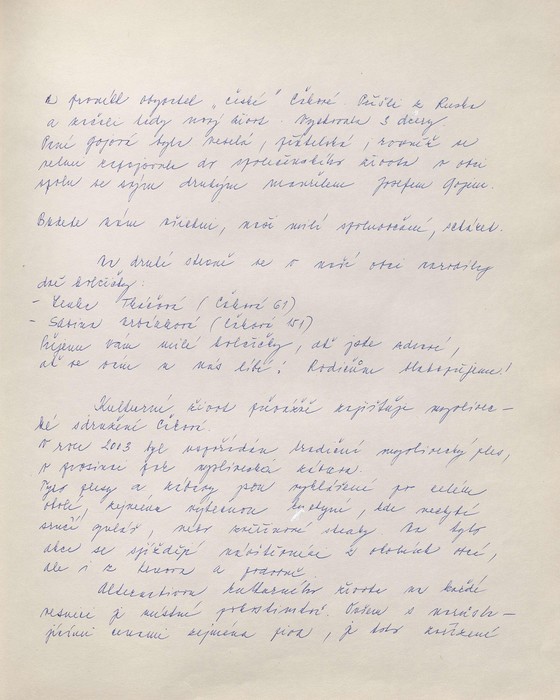 a prováděl obyvatel „české“ Čákové. Přišli z Ruska
a začali tady nový život. Vychovala 3 dcery.
Paní Gojová byla veselá, přátelská, rovněž se
velmi zapojovala do společenského života v obci
spolu se svým druhým manželem Josefem Gojem.
Budete nám všichni, naši milí spoluobčané, scházet.
Na druhé straně se v naší obci narodily
dvě holčičky:
- Lenka Tkáčová (Čáková 61)
- Sabina (Čáková 151)
Přejeme vám milé holčičky, ať jste zdravé,
ať se vám u nás líbí! Rodičům blahopřejeme!
Kulturní život převážně zajišťuje myslivec-
ké sdružení Čáková.
V roce 2013 byl uspořádán tradiční myslivecký ples,
v prosinci pak myslivecká zábava.
Tyto plesy a zábavy jsou vyhlášené po celém
okolí, zejména výbornou kuchyní, kde nechybí
srnčí guláš, nebo steaky. Na tyto
akce se sjíždějí návštěvníci z okolních obcí,
ale i z Krnova a
Alternativou kulturního života na každé
vesnici je místní pohostinství. Ovšem s narůsta-
jícími cenami zejména piva, je toto zařízení